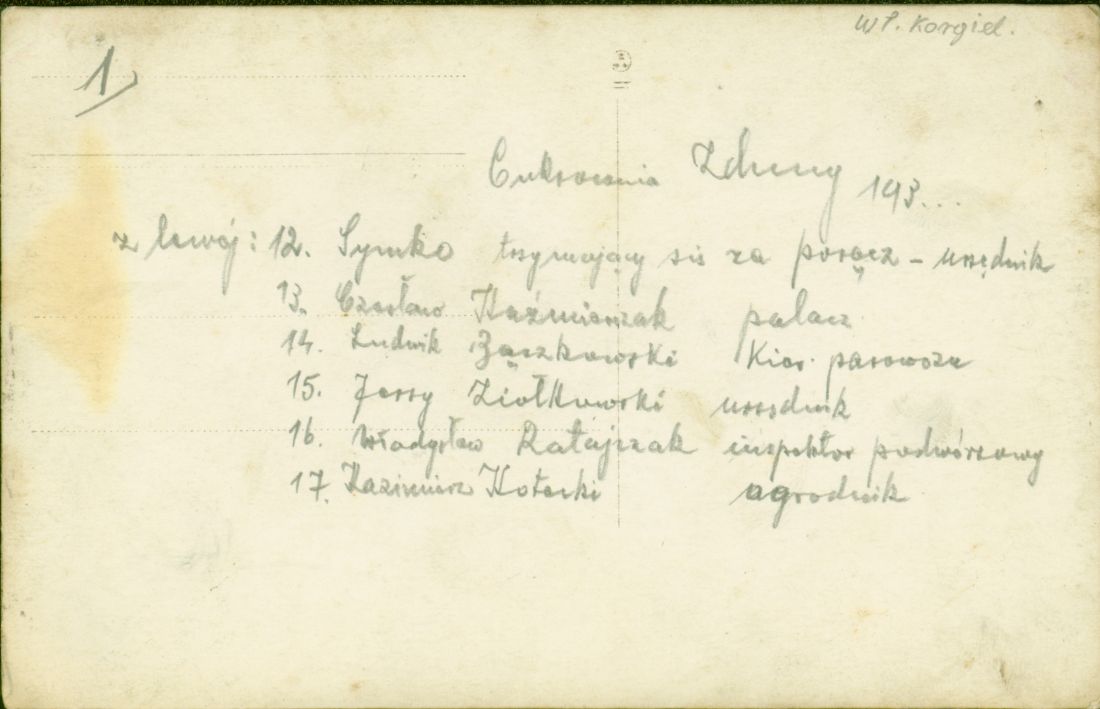 Wł. Korgiel.
1
Cukrownia Zduny 193...
z lewej: 12. Symko trzymający się za poręcz - urzędnik
13. Czesław Kaźmierczak palacz
14. Ludwik Bączkowski Kier. parowozu
15. Jerzy Ziółkowski urzędnik
16. Władysław Ratajczak inspektor podwórzowy
17. Kazimierz Kotecki ogrodnik